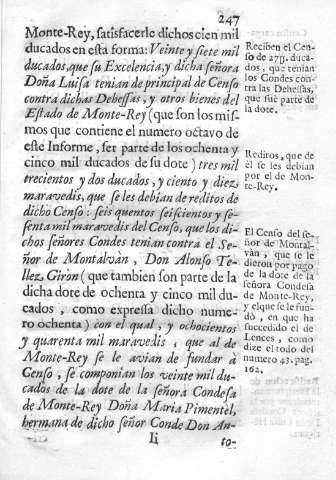 247
Monte-Rey, satisfacerle dichos cien mil
ducados en esta forma: Veinte y siete mil
ducados, que su Excelencia, y dicha señora
Doña Luisa tenian de principal de Censo
contra dichas Dehessas, y otros bienes del
Estado de Monte-Rey (que son los mis-
mos que contiene el numero octavo de
este Informe, ser parte de los ochenta y
cinco mil ducados de su dote) tres mil
trecientos y dos ducados, y ciento y diez
maravedis, que se les debian de reditos de
dicho Censo: seis quentos seiscientos y se-
senta mil maravedis del Censo, que los di-
chos señores Condes tenian contra el Se-
ñor de Montalvàn, Don Alonso Te-
llez Giròn (que tambien son parte de la
dicha dote de ochenta y cinco mil du-
cados, como expressa dicho nume-
ro ochenta) con el qual, y ochocientos
y quarenta mil maravedis, que al de
Monte-Rey se le avian de fundar à
Censo, se componian los veinte mil du-
cados de la dote de la señora Condesa
de Monte-Rey Doña Maria Pimentèl,
hermana de dicho señor Conde Don An-
Ii
to-
Reciben el Cen-
so de 27y. duca-
dos, que tenian
los Condes con-
tra las Dehessas,
que fuè parte de
la dote.
Reditos, que de
èl se les debian
por el de Mon-
te-Rey.
El Censo del se-
ñor de Montal-
vàn, que se le
dieron por pago
de la dote de la
señora Condesa
de Monte-Rey,
y el que se le fun-
dò, en que ha
succedido el de
Lences, como
dize el todo del
numero 43. pag.
162.